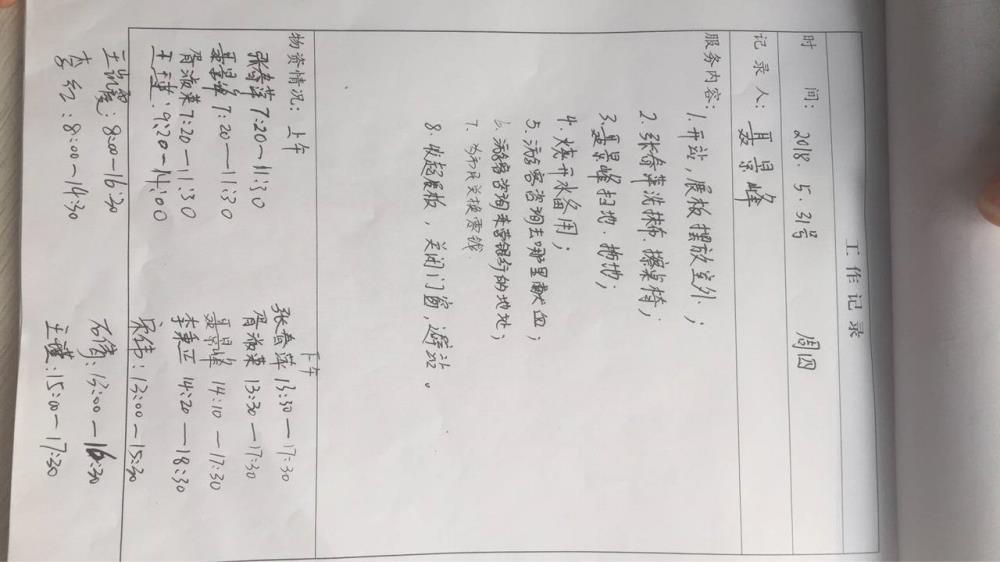 工作记录
时 间: 2018. 5. 31号 周四
记 录 人: 聂景峰
服务内容: 1. 开站,展板摆放室外;
2. 张春萍洗抹布.擦桌椅;
3. 聂景峰扫地.拖地;
4. 烧开水备用;
5. 游客咨询去哪里献血;
6. 游客咨询来营银行的地址;
7. 为市民兑换零钱
8. 收起展板,关闭门窗,避站。
物资情况: 上午
张春萍 7:20-11:30
聂景峰 7:20-11:30
胥淑荣 7:20-11:30
9:20-14:00
8:00-16:30
李红: 8:00-14:30
下午
张春萍 13:30-17:30
胥淑荣 13:30-17:30
聂景峰 14:10-17:30
李秉正 14:20-18:30
宋伟: 13:00-15:30
石倩: 13:00-16:30
王瑾: 15:00-17:30